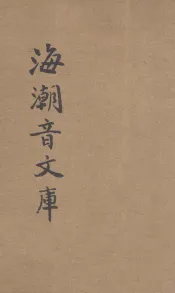 海潮音文庫